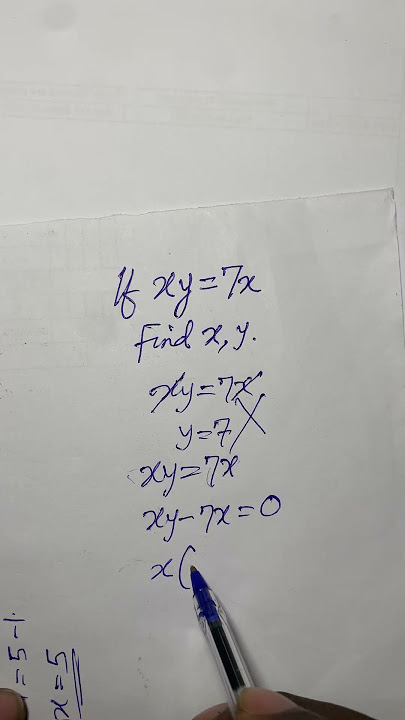 If xy=7x
Find x, y.
xy=7x
y=7
xy=7x
xy-7x=0
x(
=5-1
x=5